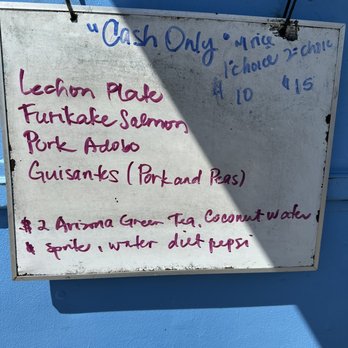 "Cash Only" w/ rice
1 choice 2 choice
$10 $15
Lechon Plate
Furikake Salmon
Pork Adobo
Guisantes (Pork and Peas)
$2 Arizona Green Tea, Coconut Water
Sprite, water diet pepsi